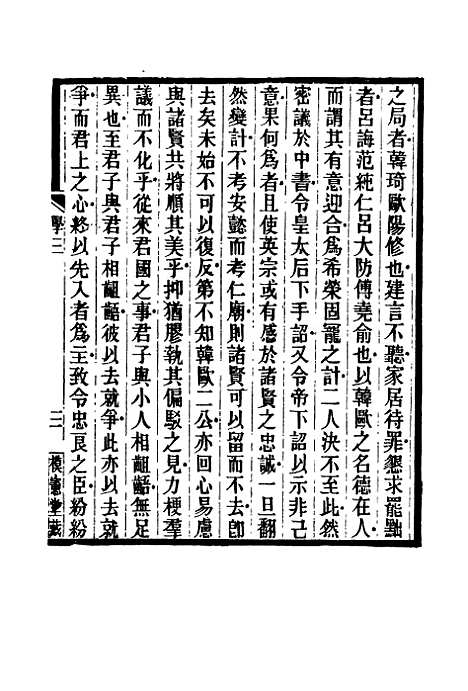 之局者韓琦歐陽修也建言不聽家居待罪懇求罷黜
者呂誨范純仁呂大防傅堯俞也以韓歐之名德在人
而謂其有意迎合爲希榮固寵之計二人決不至此然
密議於中書令皇太后下手詔又令帝下詔以示非己
意果何爲者且使英宗或有感於諸賢之忠誠一旦翻
然變計不考安懿而考仁廟則諸賢可以留而不去卽
去矣未始不可以復反第不知韓歐二公亦回心易慮
與諸賢共將順其美乎抑猶膠執其偏駁之見力梗羣
議而不化乎從來君國之事君子與小人相齟齬無足
異也至君子與君子相齟齬彼以去就爭此亦以去就
爭而君上之心終以先入者爲主致令忠良之臣紛紛
學三
三
模憲堂藏